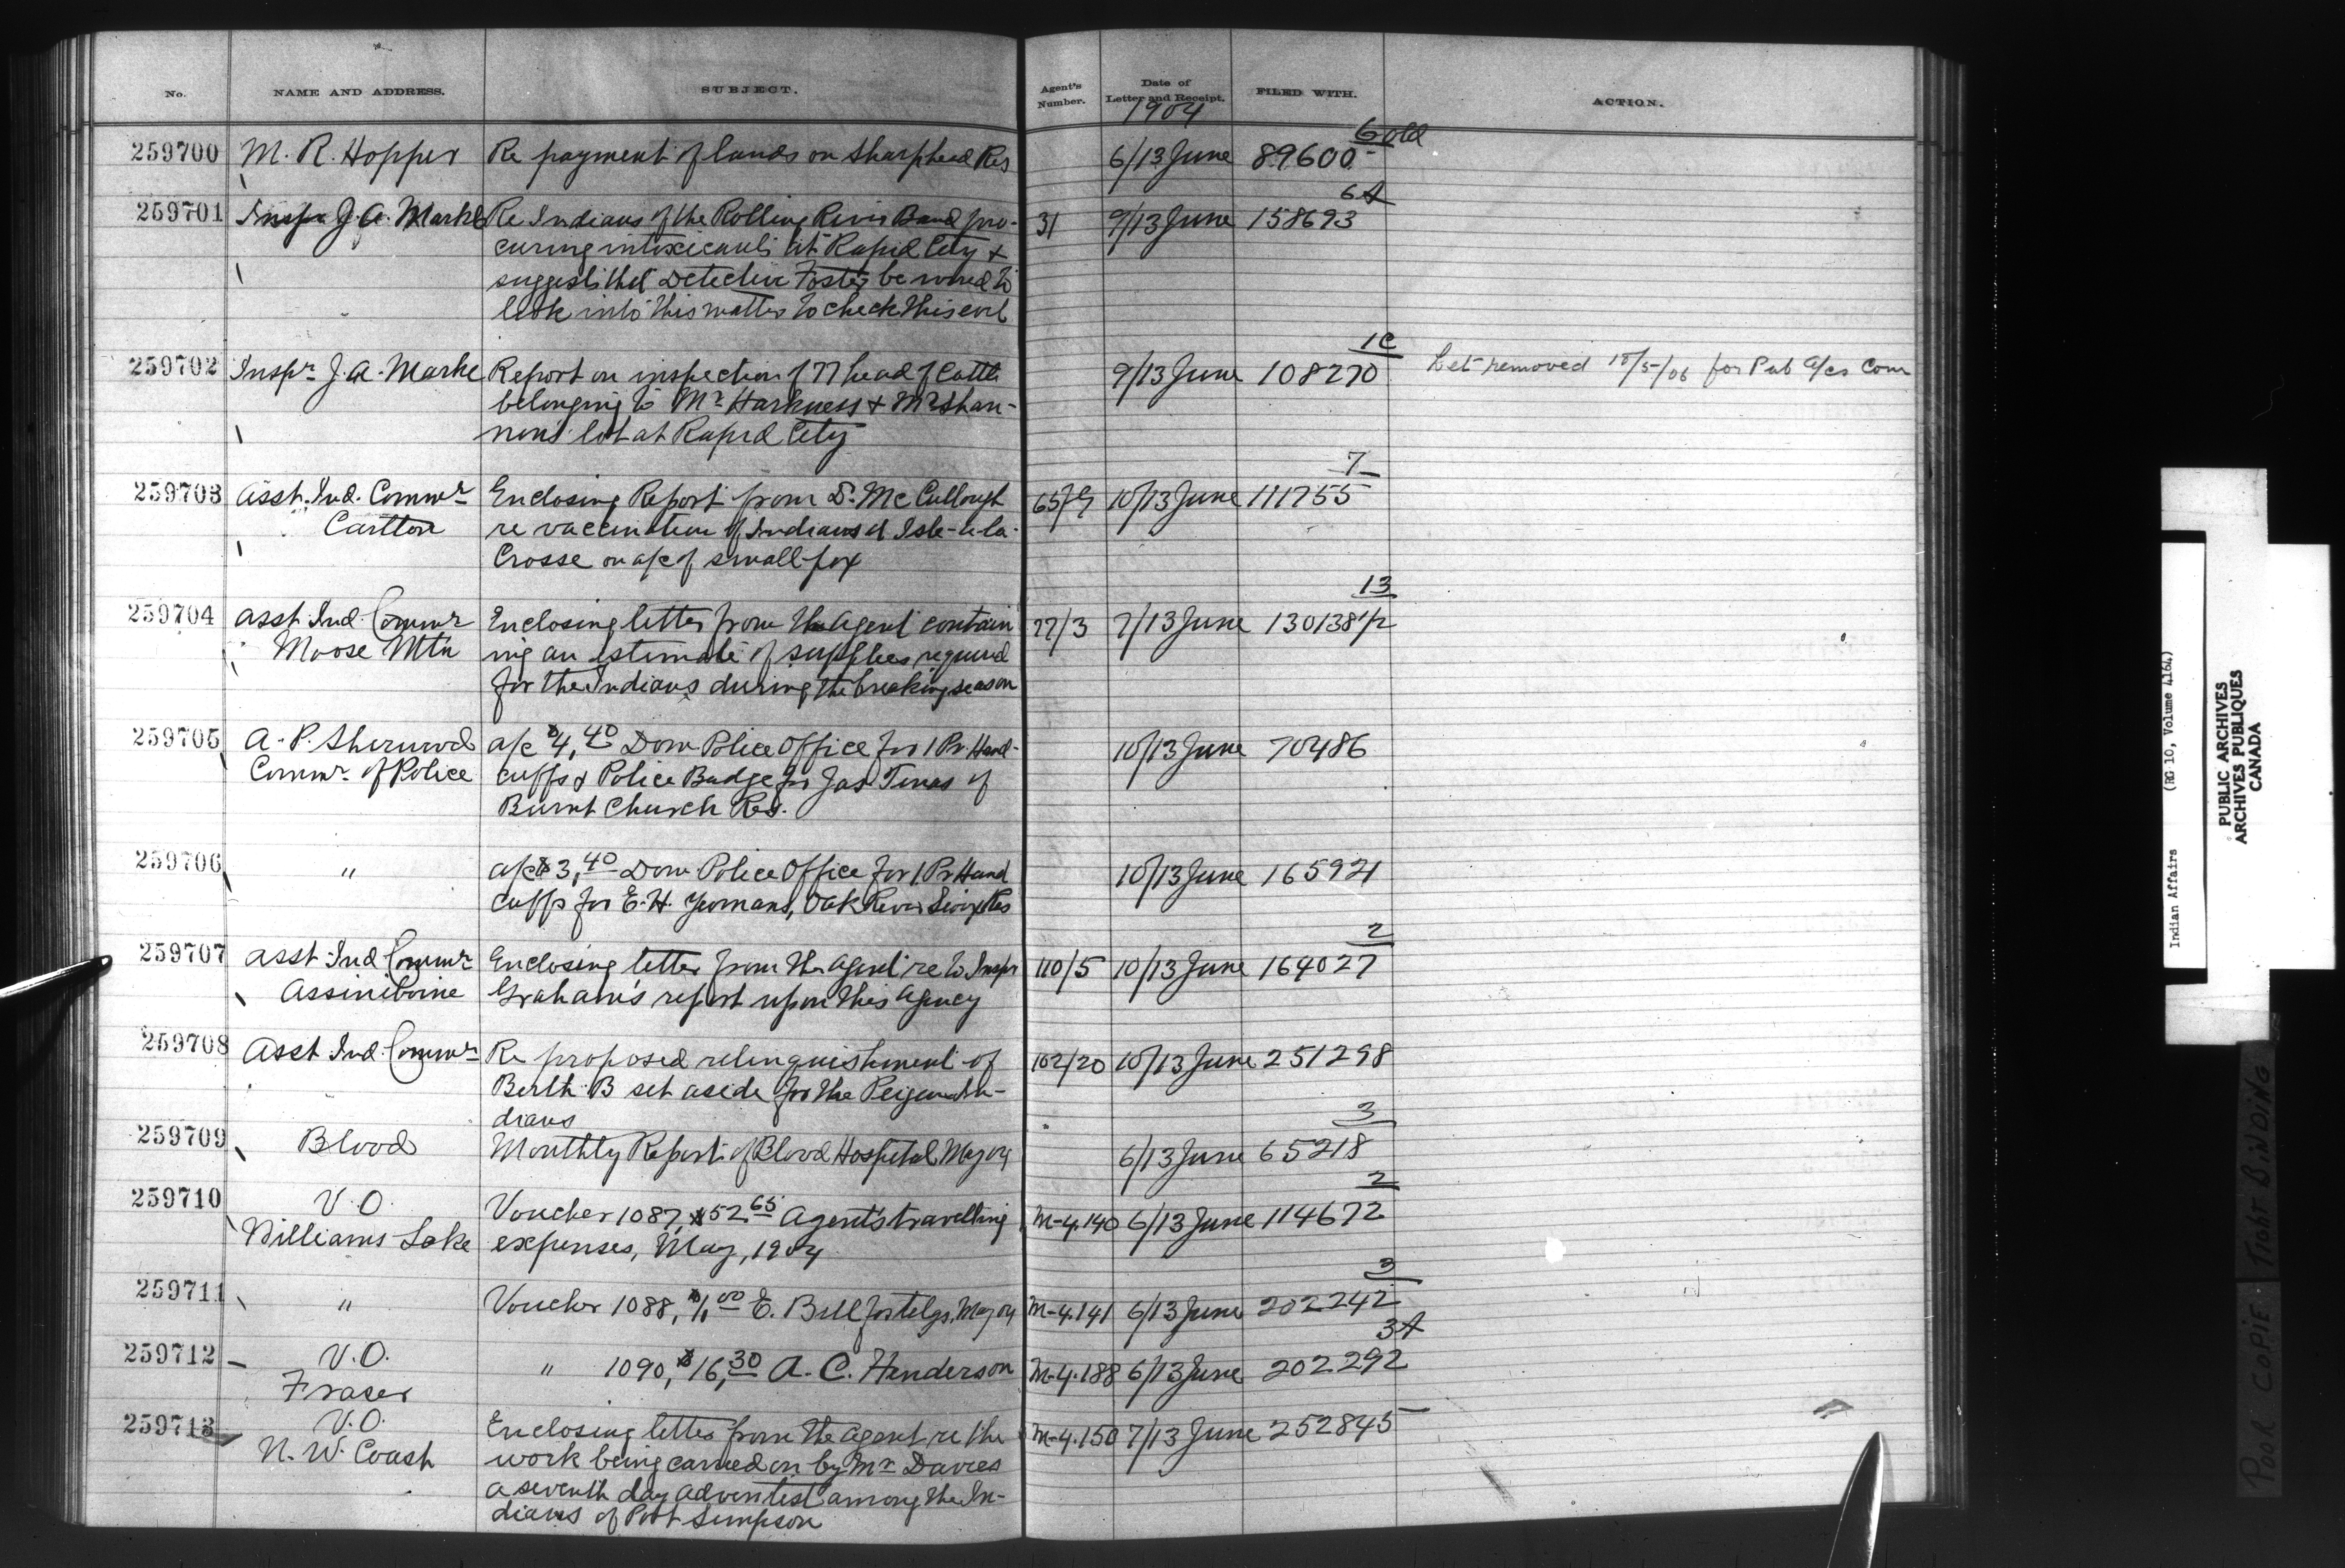 No. NAME AND ADDRESS. SUBJECT. Agent's Number. Date of Letter and Receipt. FILED WITH. ACTION.
1904
6 old
259700 M. R. Hopper Re payment of lands on Sharphead Res 6/13 June 89600
6A
259701 Inspr J. A. Markle Re Indians of the Rolling River Band pro- 31 9/13 June 158693
curing intoxicants at Rapid City &
suggests that Detective Foster be wired to
look into this matter to check this evil
1C
259702 Inspr. J. A. Markle Report on inspection of 77 head of Cattle 9/13 June 108270 Let removed 18/5/06 for Pub a/cs Com
belonging to Mr Harkness & Mr Shan-
non's lot at Rapid City
7
259703 Asst. Ind. Commr Enclosing Report from Dr. McCullough 10/13 June 111755
Carlton re vaccination of Indians at Isle-a-la-
Crosse on a/c of small-pox
13
259704 Asst Ind. Commr Enclosing letter from the Agent contain 77/3 7/13 June 130138 1/2
Moose Mtn ing an estimate of supplies required
for the Indians during the breaking season
259705 A. P. Sherwood a/c $4,40 Dom Police Office for 1 Pr. Hand- 10/13 June 70486
Commr. of Police cuffs & Police Badge for Jas Tenas of
Burnt Church Res.
259706 " a/c $3,40 Dom Police Office for 1 Pr Hand 10/13 June 165921
cuffs for E. H. Yeomans, Oak River Sioux Res
2
259707 Asst Ind Commr Enclosing letter from the Agent re to Inspr 110/5 10/13 June 164027
Assiniboine Graham's report upon this Agency
259708 Asst Ind. Commr Re proposed relinquishment of 102/20 10/13 June 251298
Berth B set aside for the Peigan In-
dians
3
259709 Blood Monthly Report of Blood Hospital May 04 6/13 June 65218
2
259710 V.O. Voucher 1087, $52.65 Agent's travelling M-4.140 6/13 June 114672
Williams Lake expenses, May, 1904
3
259711 " Voucher 1088, $1,00 E. Bell for telgs. May 04 M-4.141 6/13 June 202242
3A
259712 V.O. " 1090, $16,30 A. C. Henderson M-4.188 6/13 June 202292
Fraser
259713 V.O. Enclosing letter from the Agent re the M-4.150 7/13 June 252845
N. W. Coast work being carried on by Mr Davies
a seventh day adventist among the In-
dians of Port Simpson
Indian Affairs (RG 10, Volume 4164)
PUBLIC ARCHIVES
ARCHIVES PUBLIQUES
CANADA
POOR COPIE TIGHT BINDING